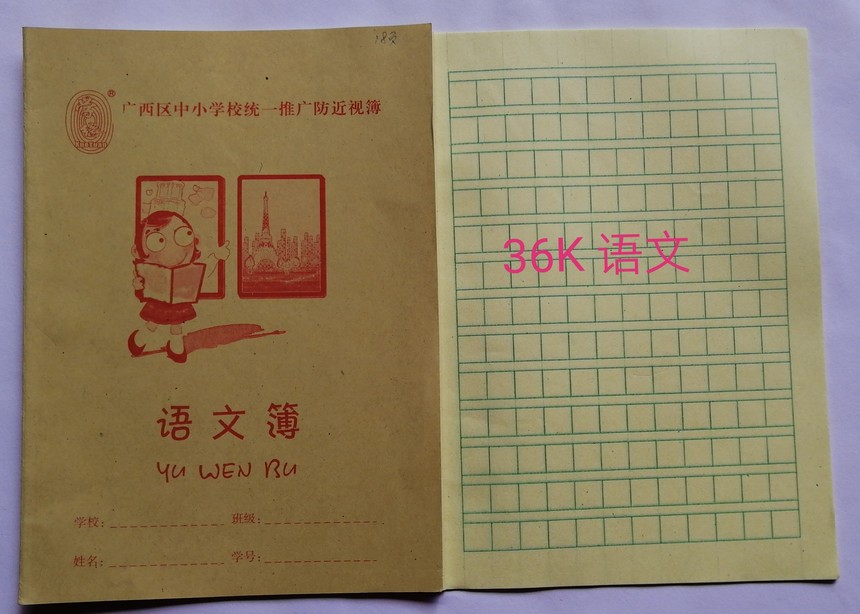 ®
广西区中小学校统一推广防近视簿
语文簿
YU WEN BU
学校: 班级:
姓名: 学号:
36K 语文